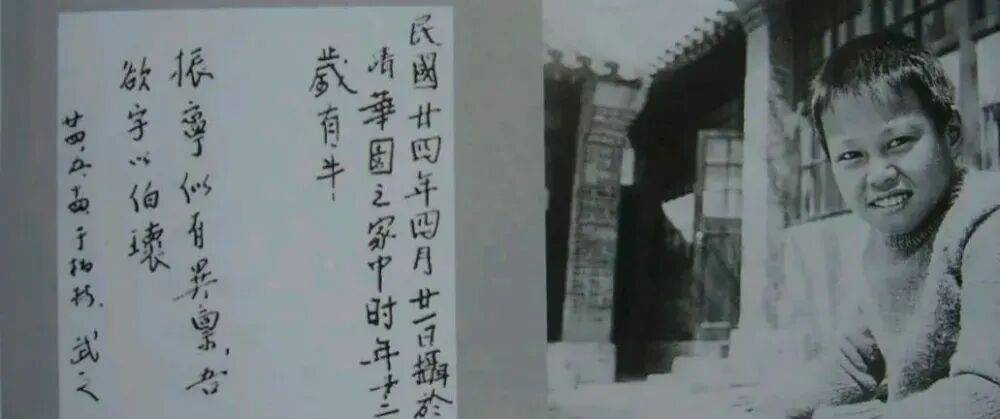 民國廿四年四月廿一日攝於
清華園之家中时年十二
歲有半
振寧似有異禀,吾
欲字以伯瓌
廿四.五. 于柏林. 武之